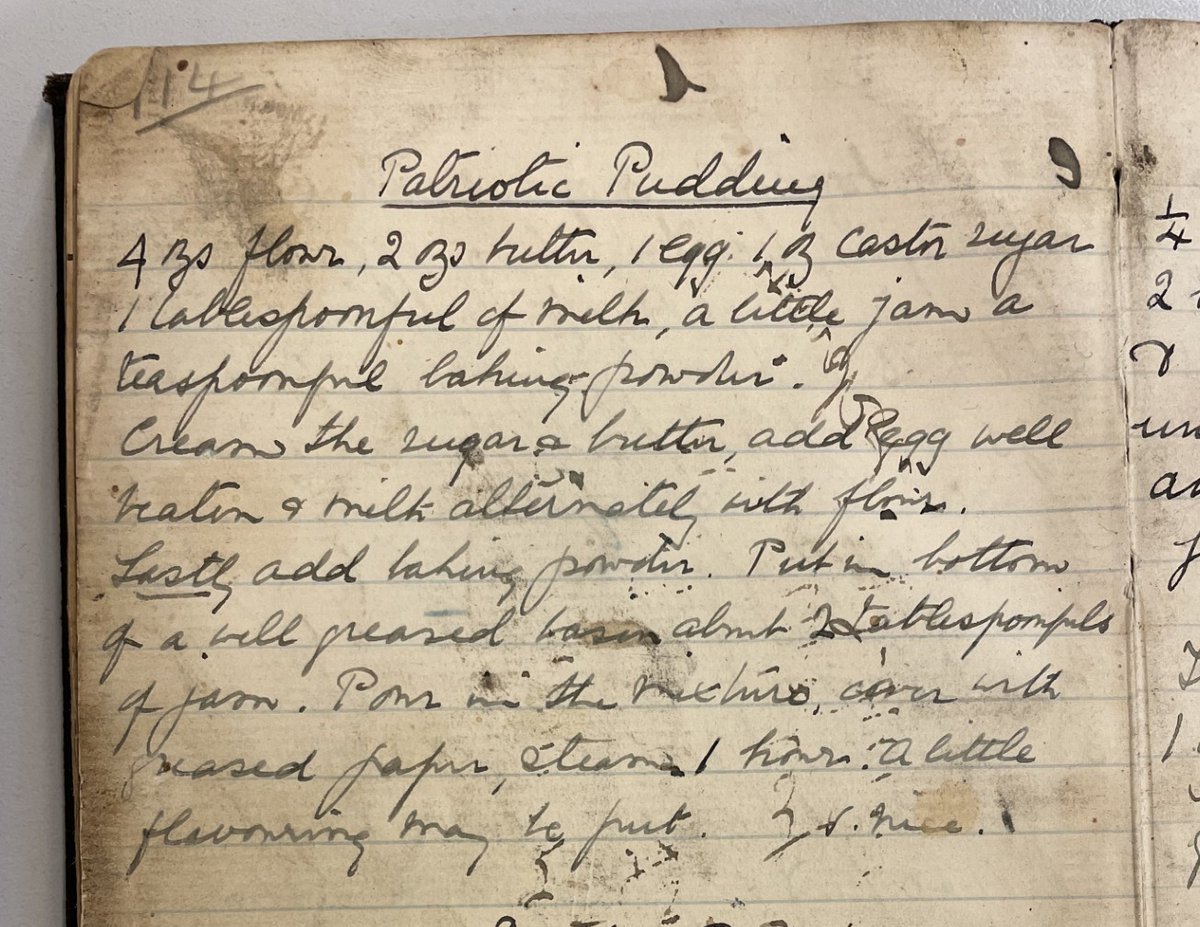 114
Patriotic Pudding
4 ozs flour, 2 ozs butter, 1 egg. 1 oz castor sugar
1 tablespoonful of milk, a little jam a
teaspoonful baking powder.
Cream the sugar & butter, add egg well
beaten & milk alternately with flour.
Lastly add baking powder. Put in bottom
of a well greased basin about 2 tablespoonfuls
of jam. Pour in the mixture, cover with
greased paper, steam 1 hour. A little
flavouring may be put. nice.
1/4
2
1